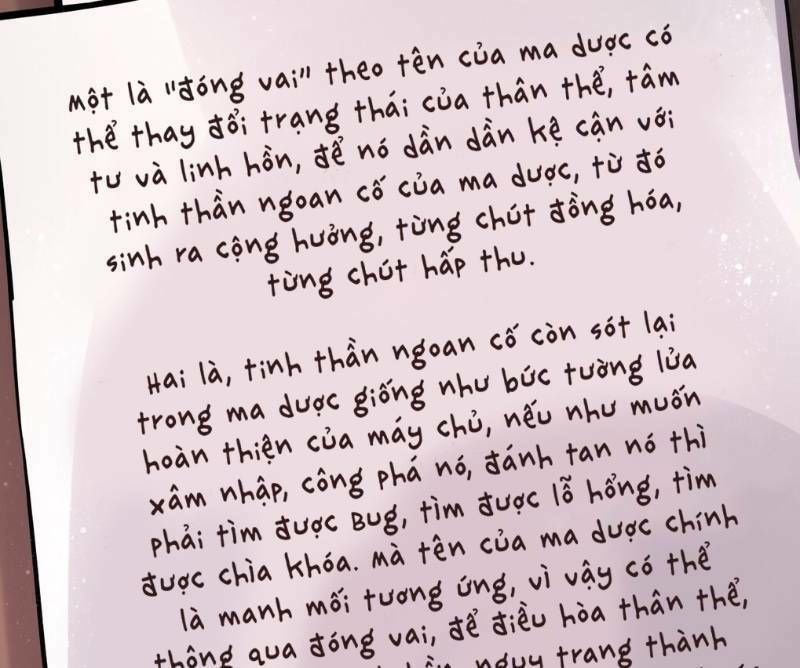 Một là "đóng vai" theo tên của ma dược có
thể thay đổi trạng thái của thân thể, tâm
tư và linh hồn, để nó dần dần kệ cận với
tinh thần ngoan cố của ma dược, từ đó
sinh ra cộng hưởng, từng chút đồng hóa,
từng chút hấp thu.
Hai là, tinh thần ngoan cố còn sót lại
trong ma dược giống như bức tường lửa
hoàn thiện của máy chủ, nếu như muốn
xâm nhập, công phá nó, đánh tan nó thì
phải tìm được Bug, tìm được lỗ hổng, tìm
được chìa khóa. Mà tên của ma dược chính
là manh mối tương ứng, vì vậy có thể
thông qua đóng vai, để điều hòa thân thể,
nguy trang thành